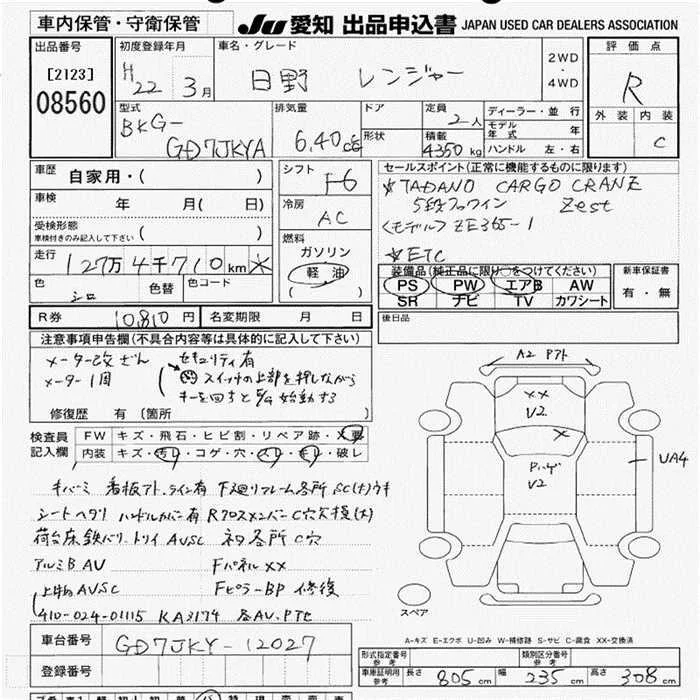 車内保管・守衛保管
JU 愛知 出品申込書 JAPAN USED CAR DEALERS ASSOCIATION
出品番号
[2123]
08560
初度登録年月
H 22 3月
車名・グレード
日野 レンジャー
2WD
・
4WD
評価点
R
外装 内装
C
型式
BKG-
GD7JKYA
排気量
6.40cc
ドア
形状
定員
2人
積載
4350kg
ディーラー・並行
モデル年式 年
ハンドル 左・右
車歴
自家用・( )
車検
年 月( 日)
受検形態
車検付きのみ記入して下さい ( )
走行
127万4千710km
色
シロ
色替
色コード
シフト
F6
冷房
AC
燃料
ガソリン
軽油
( )
セールスポイント(正常に機能するものに限ります)
☆TADANO CARGO CRANE
5段フックイン Zest
<モデル> ZE365-1
☆ETC
装備品(純正品に限り○をつけてください)
PS PW エアB AW
SR ナビ TV カワシート
新車保証書
有・無
後日品
R券 10810円
名変期限 月 日
注意事項申告欄(不具合内容等は具体的に記入して下さい)
メーター改ざん
メーター1周
セキュリティ有
スイッチの上部を押しながら
キーを回すとE/G始動する
修復歴 有(箇所 )
検査員記入欄
FW キズ・飛石・ヒビ割・リペア跡・X要
内装 キズ・汚れ・コゲ・穴・スレ・キレ・破レ
キバーミ 看板アト.ライン有 下廻りフレーム各所SC(大)ウキ
シートヘタリ ハンドルカバー有 Rクロスメンバーc穴欠損(大)
荷台床鉄バリ.トリイAVSC ネタ各所C穴
アルミB AV Fパネルxx
上物AVSC Fピラー-BP 修復
410-024-01115 KA3174 各AV.PTC
A2 アクト
xx
V2
X
Pハゲ
V2
UA4
スペア
A-キズ E-エクボ U-凹み W-補修跡 S-サビ C-腐食 XX-交換済
車台番号
GD7JKY-12027
登録番号
形式指定番号 参考
類別区分番号 参考
車庫証明用 参考
長さ 805cm 幅 235cm 高さ 308cm